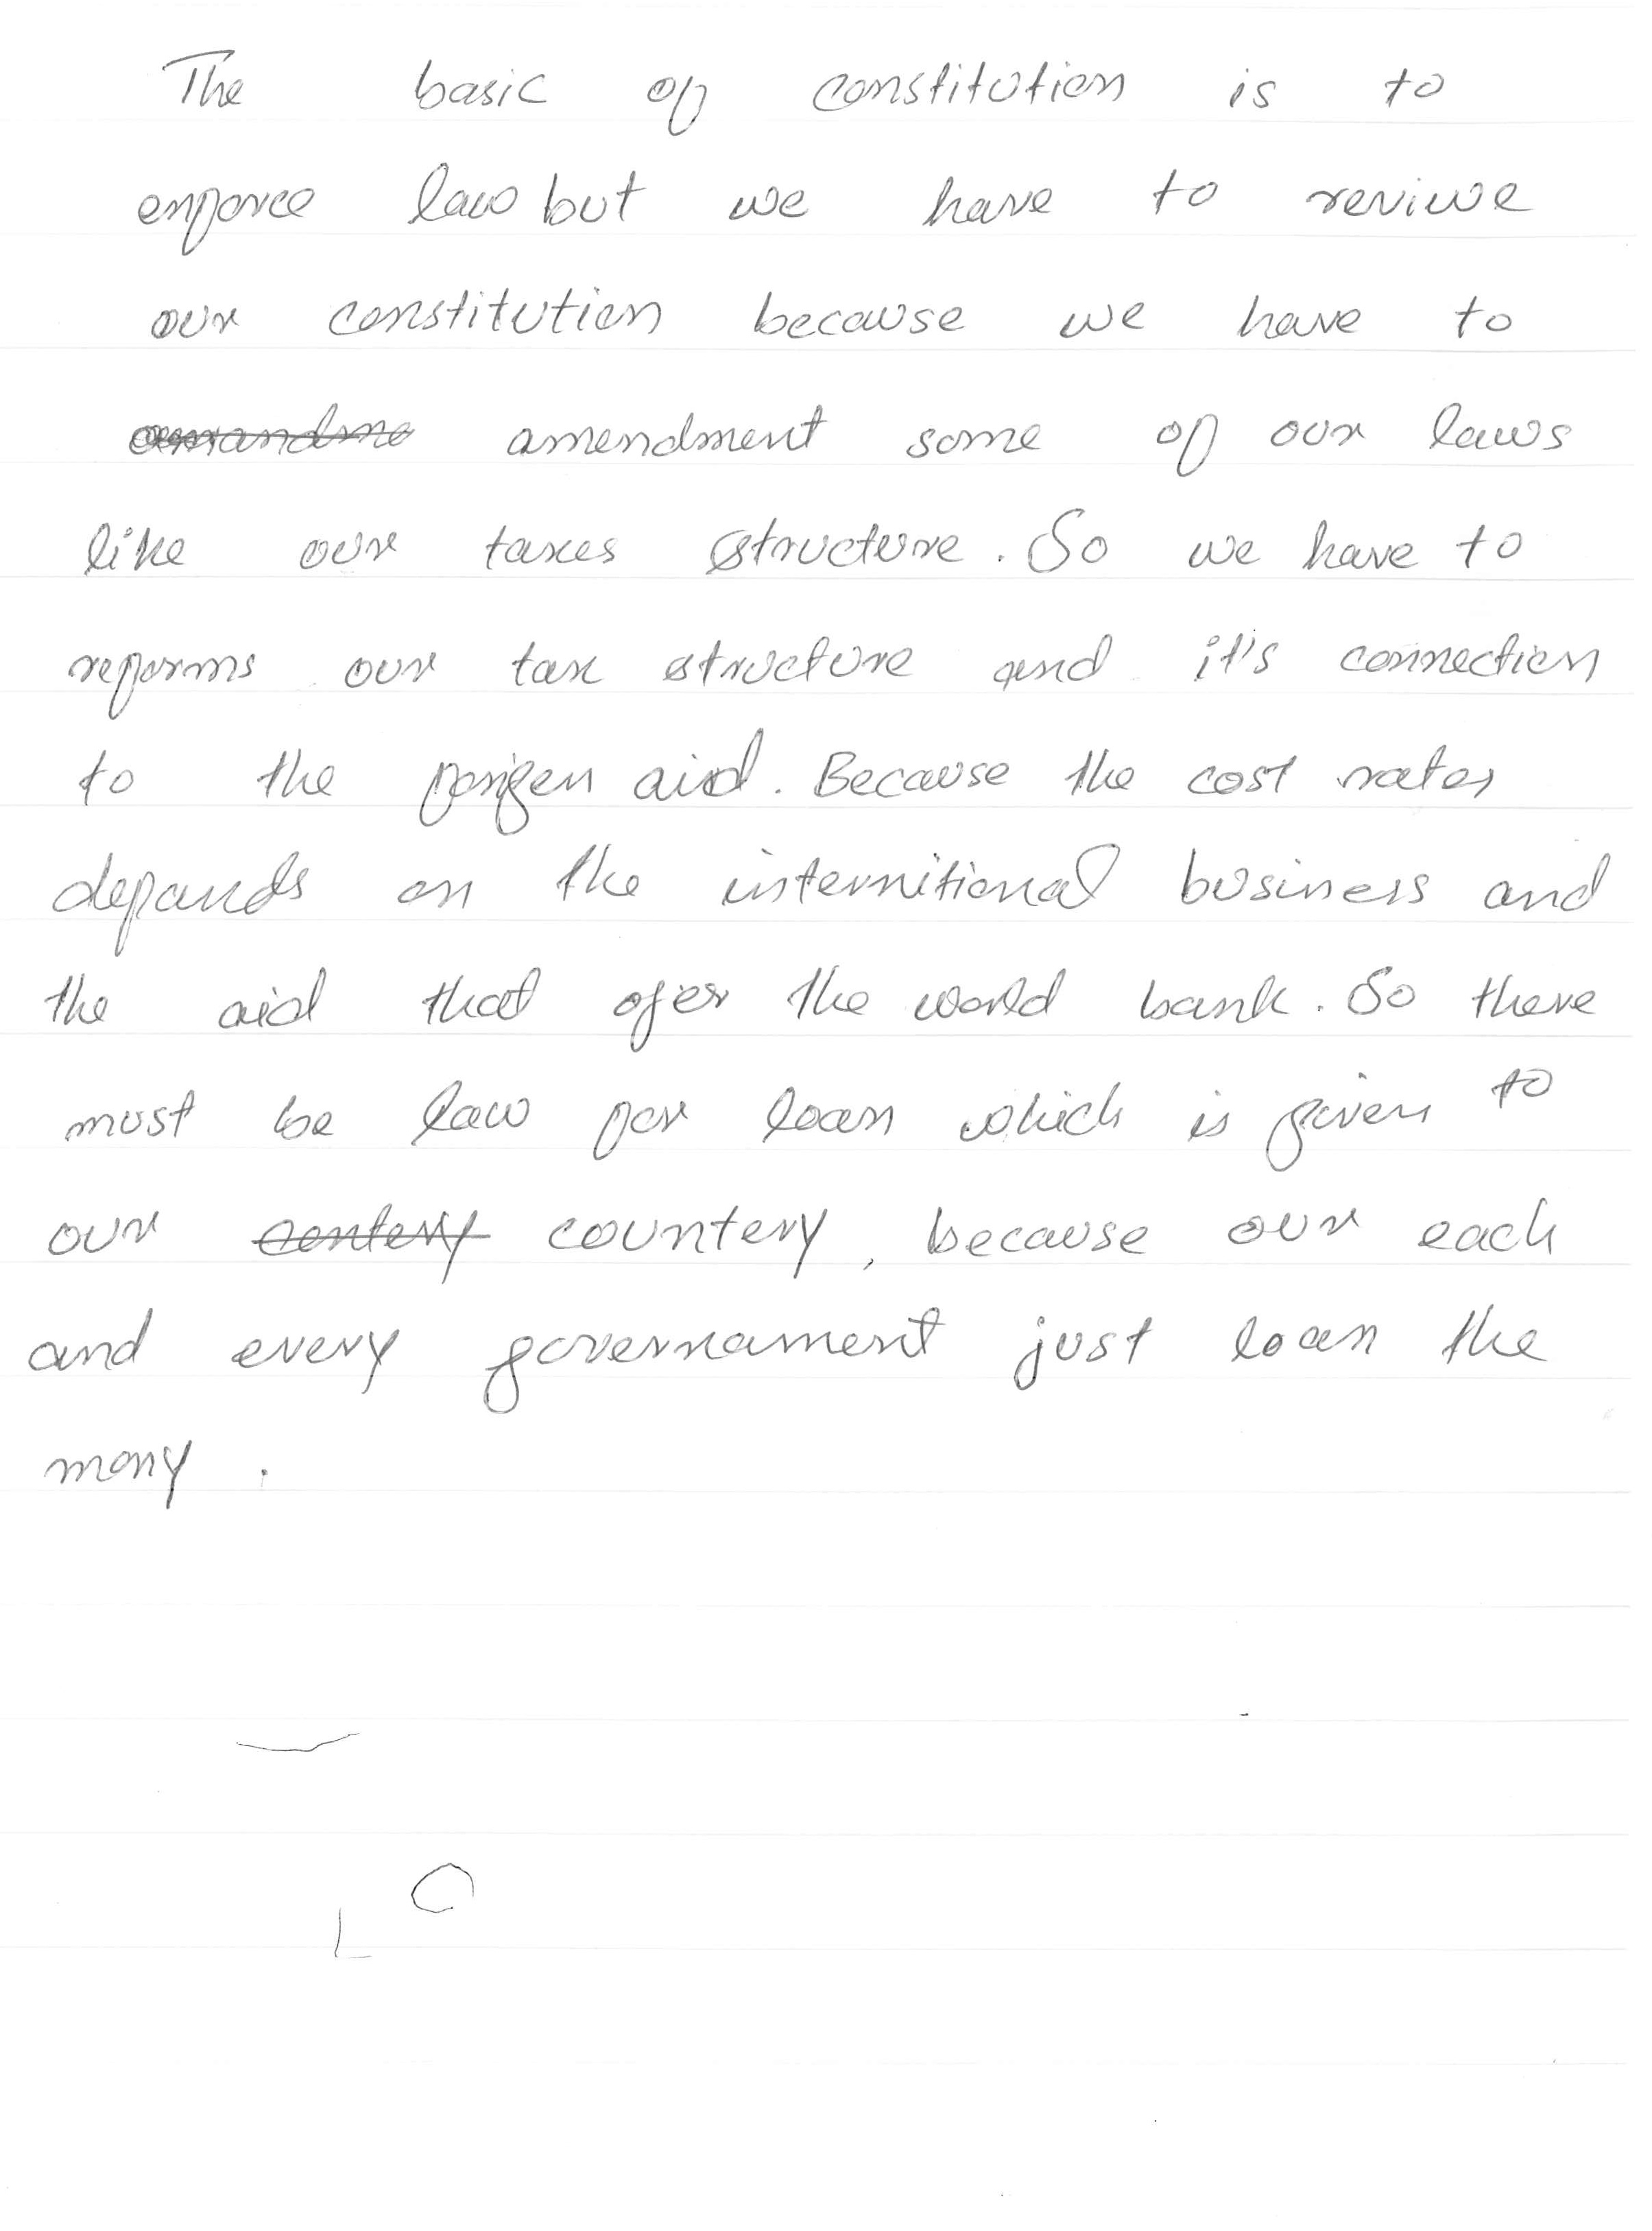 The basic of constitution is to
enforce law but we have to reviwe
our constitution because we have to
amendment some of our laws
like our taxes structure. So we have to
reforms our tax structure and it's connection
to the forigen aid. Because the cost rates
depands on the internitional business and
the aid that ofer the world bank. So there
must be law for loan which is given to
our contery countery, because our each
and every governament just loan the
mony.